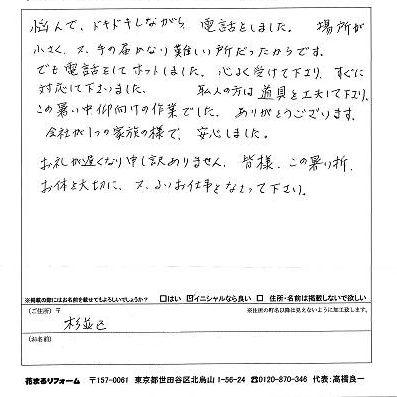 悩んで、ドキドキしながら、電話をしました。場所が
小さく、又、手の届かない難しい所だったからです。
でも電話をしてホットしました。心よく受けて下さり、すぐに
対応して下さいました。 職人の方は道具を工夫して下さり、
この暑い中仰向けの作業でした。ありがとうございます。
会社が1つの家族の様で、安心しました。
お礼が遅くなり申し訳ありません。皆様、この暑い折、
お体を大切に、又、よいお仕事をなさって下さい。
※掲載の際にはお名前を載せてもよろしいでしょうか? □はい ☑イニシャルなら良い □ 住所・名前は掲載しないで欲しい
(ご住所) 〒 ※住所の町名以降は見えないように加工致します。
杉並区
(お名前)
花まるリフォーム 〒157-0061 東京都世田谷区北烏山1-56-24 ☎0120-870-346 代表:高橋良一